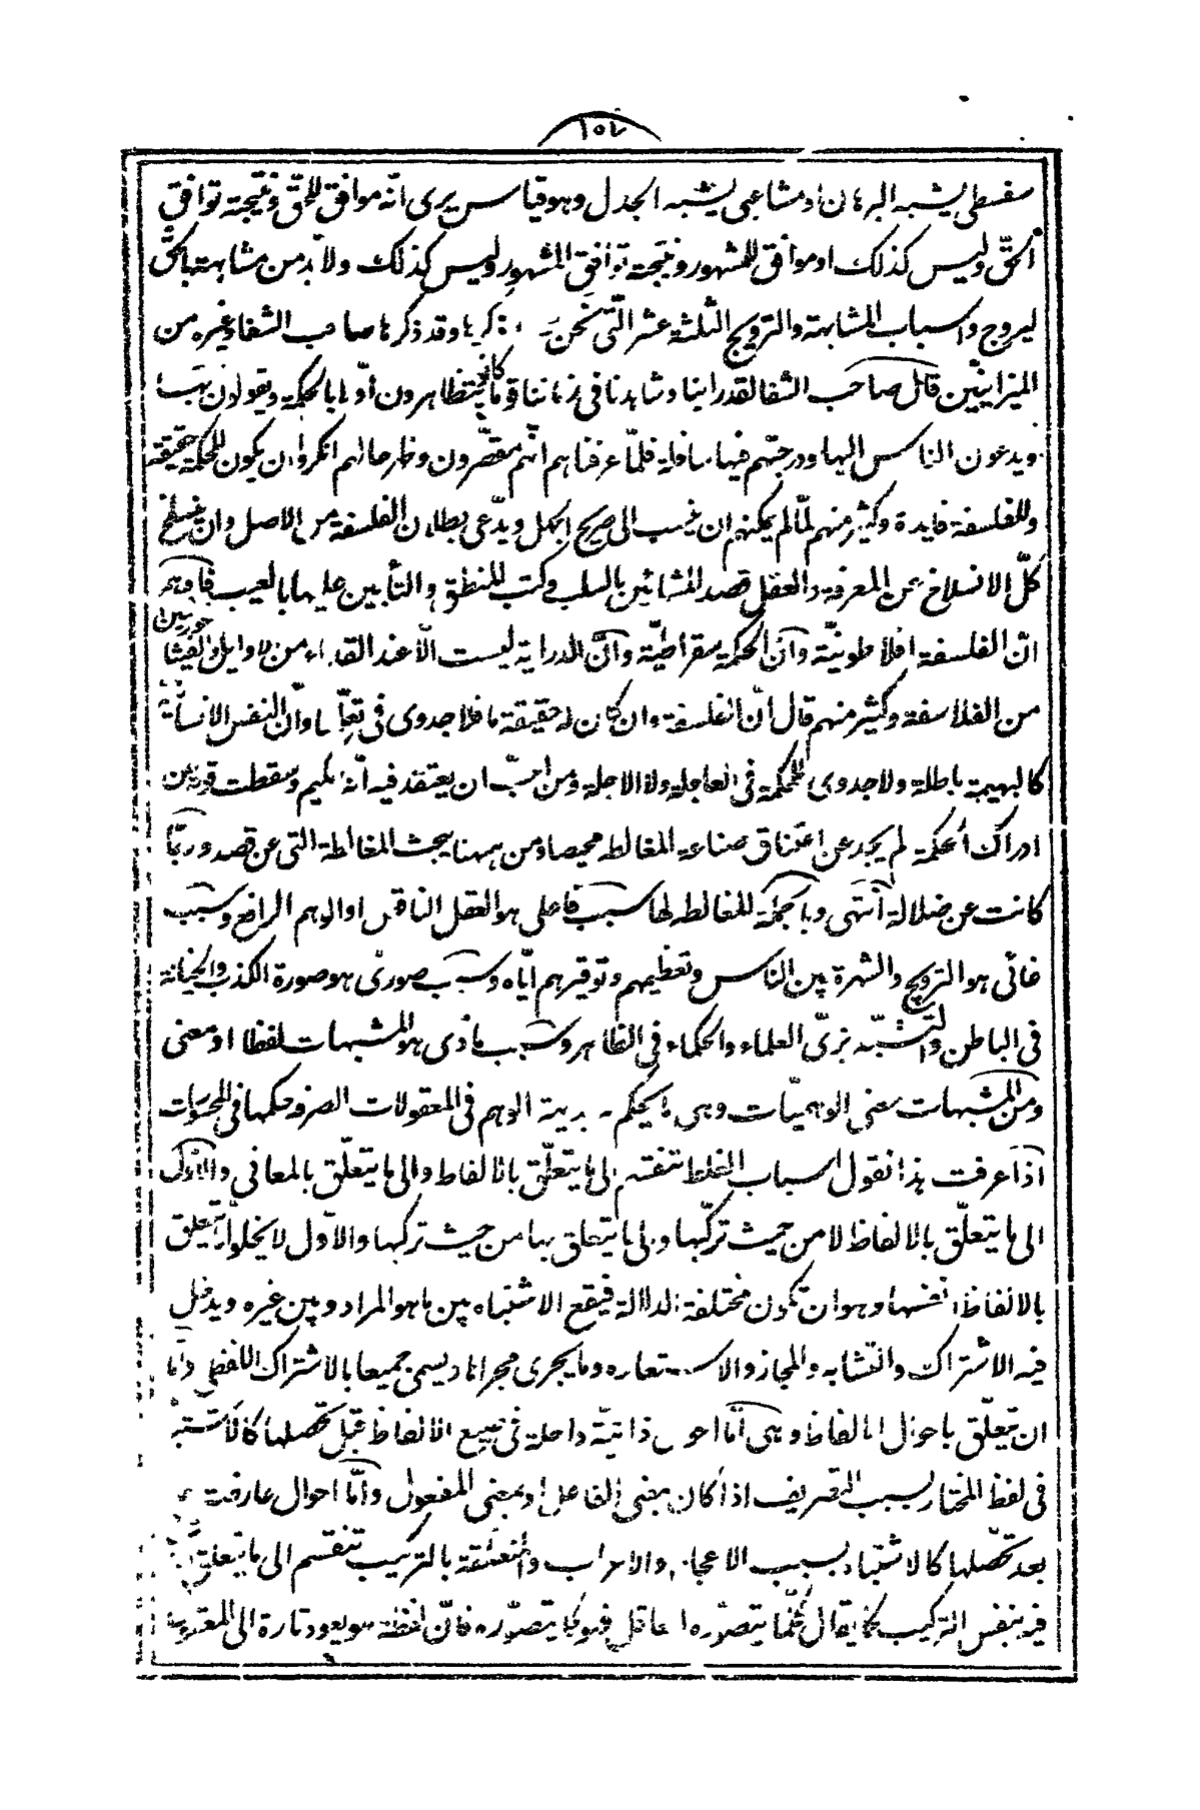 ١٥٧
سفسطي يشبه البرهان او مشاغبي يشبه الجدل وهو قياس يرى انّه موافق للحقّ ونتيجته توافق
الحقّ وليس كذلك او موافق للمشهور ونتيجته توافق المشهور وليس كذلك ولا بدّ من مشابهته بالحقّ
ليروج واسباب المشابهة والترويج الثلثة عشر التي نحن نذكرها وقد ذكرها صاحب الشفاء وغيره من
الميزانيّين قال صاحب الشفا لقد راينا وشاهدنا في زماننا قوما كانوا يتظاهرون اوّلا بالحكمة ويقولون بها
ويدعون الناس اليها ودرجتهم فيها سافلة فلمّا عرفناهم انّهم مقصّرون وظهر حالهم انكروا ان يكون للحكمة حقيقة
وللفلسفة فايدة وكثير منهم لمّا لم يمكنهم ان ينسب الى صريح الجهل ويدّعى بطلان الفلسفة من الاصل وان ينسلخ
كلّ الانسلاخ عن المعرفة والعقل قصد المشائين بالسلب وكتب المنطق والتأبين عليها بالعيب فاوهم
انّ الفلسفة افلاطونيّة وانّ الحكمة سقراطيّة وانّ الدراية ليست الّا عند القدماء من الاوايل والفيثاغوريين
من الفلاسفة وكثير منهم قال انّ الفلسفة وان كان له حقيقة ما فلا جدوى في تعلّمها وانّ النفس الانسانية
كالبهيمة باطلة ولا جدوى للحكمة في العاجلة ولا الاجلة ومن احبّ ان يعتقد فيه انّه حكيم وسقطت قوته عن
ادراك الحكمة لم يجد عن اعتناق صناعة المغالطه محيصا ومن ههنا يبحث المغالطة التي عن قصد وربّما
كانت عن ضلالة انتهى وبالجملة للمغالطه لها سبب فاعلى هو العقل الناقص او الوهم الرافع وسبب
غائى هو الترويج والشهرة بين الناس وتعظيمهم وتوقيرهم ايّاه وسبب صورىّ هو صورة الكذب والخيانة
في الباطن والتشبّه بزىّ العلماء والحكماء في الظاهر وسبب مادّى هو المشبهات لفظا او معنى
ومن المشبهات معنى الوهميّات وهى ما يحكم بديهة الوهم في المعقولات الصرفه حكمها في المحسوسات
اذا عرفت هذا نقول اسباب الغلط تنقسم الى ما يتعلّق بالالفاظ والى ما يتعلّق بالمعاني والاوّل
الى ما يتعلّق بالالفاظ لا من حيث تركّبها والى ما يتعلق بها من حيث تركبها والاوّل لا يخلو امّا يتعلق
بالالفاظ انفسها وهو ان تكون مختلفة الدلالة فيقع الاشتباه بين ما هو المراد وبين غيره ويدخل
فيه الاشتراك والتشابه والمجاز والاستعاره وما يجرى مجراها ويسمى جميعا بالاشتراك اللفظى وامّا
ان يتعلّق باحوال الالفاظ وهى امّا احوال ذاتيّة داخلة في صيغ الالفاظ قبل تحصلها كالاشتباه
في لفظ المختار بسبب التصريف اذا كان بمعنى الفاعل او بمعنى المفعول وامّا احوال عارضة
بعد تحصّلها كالاشتباه بسبب الاعجام والاعراب والمتعلقة بالتركيب تنقسم الى ما يتعلق
فيه بنفس التركيب كما يقال كلّما يتصوّره العاقل فهو كما يتصوّره فانّ لفظة هو يعود تارة الى المعقول